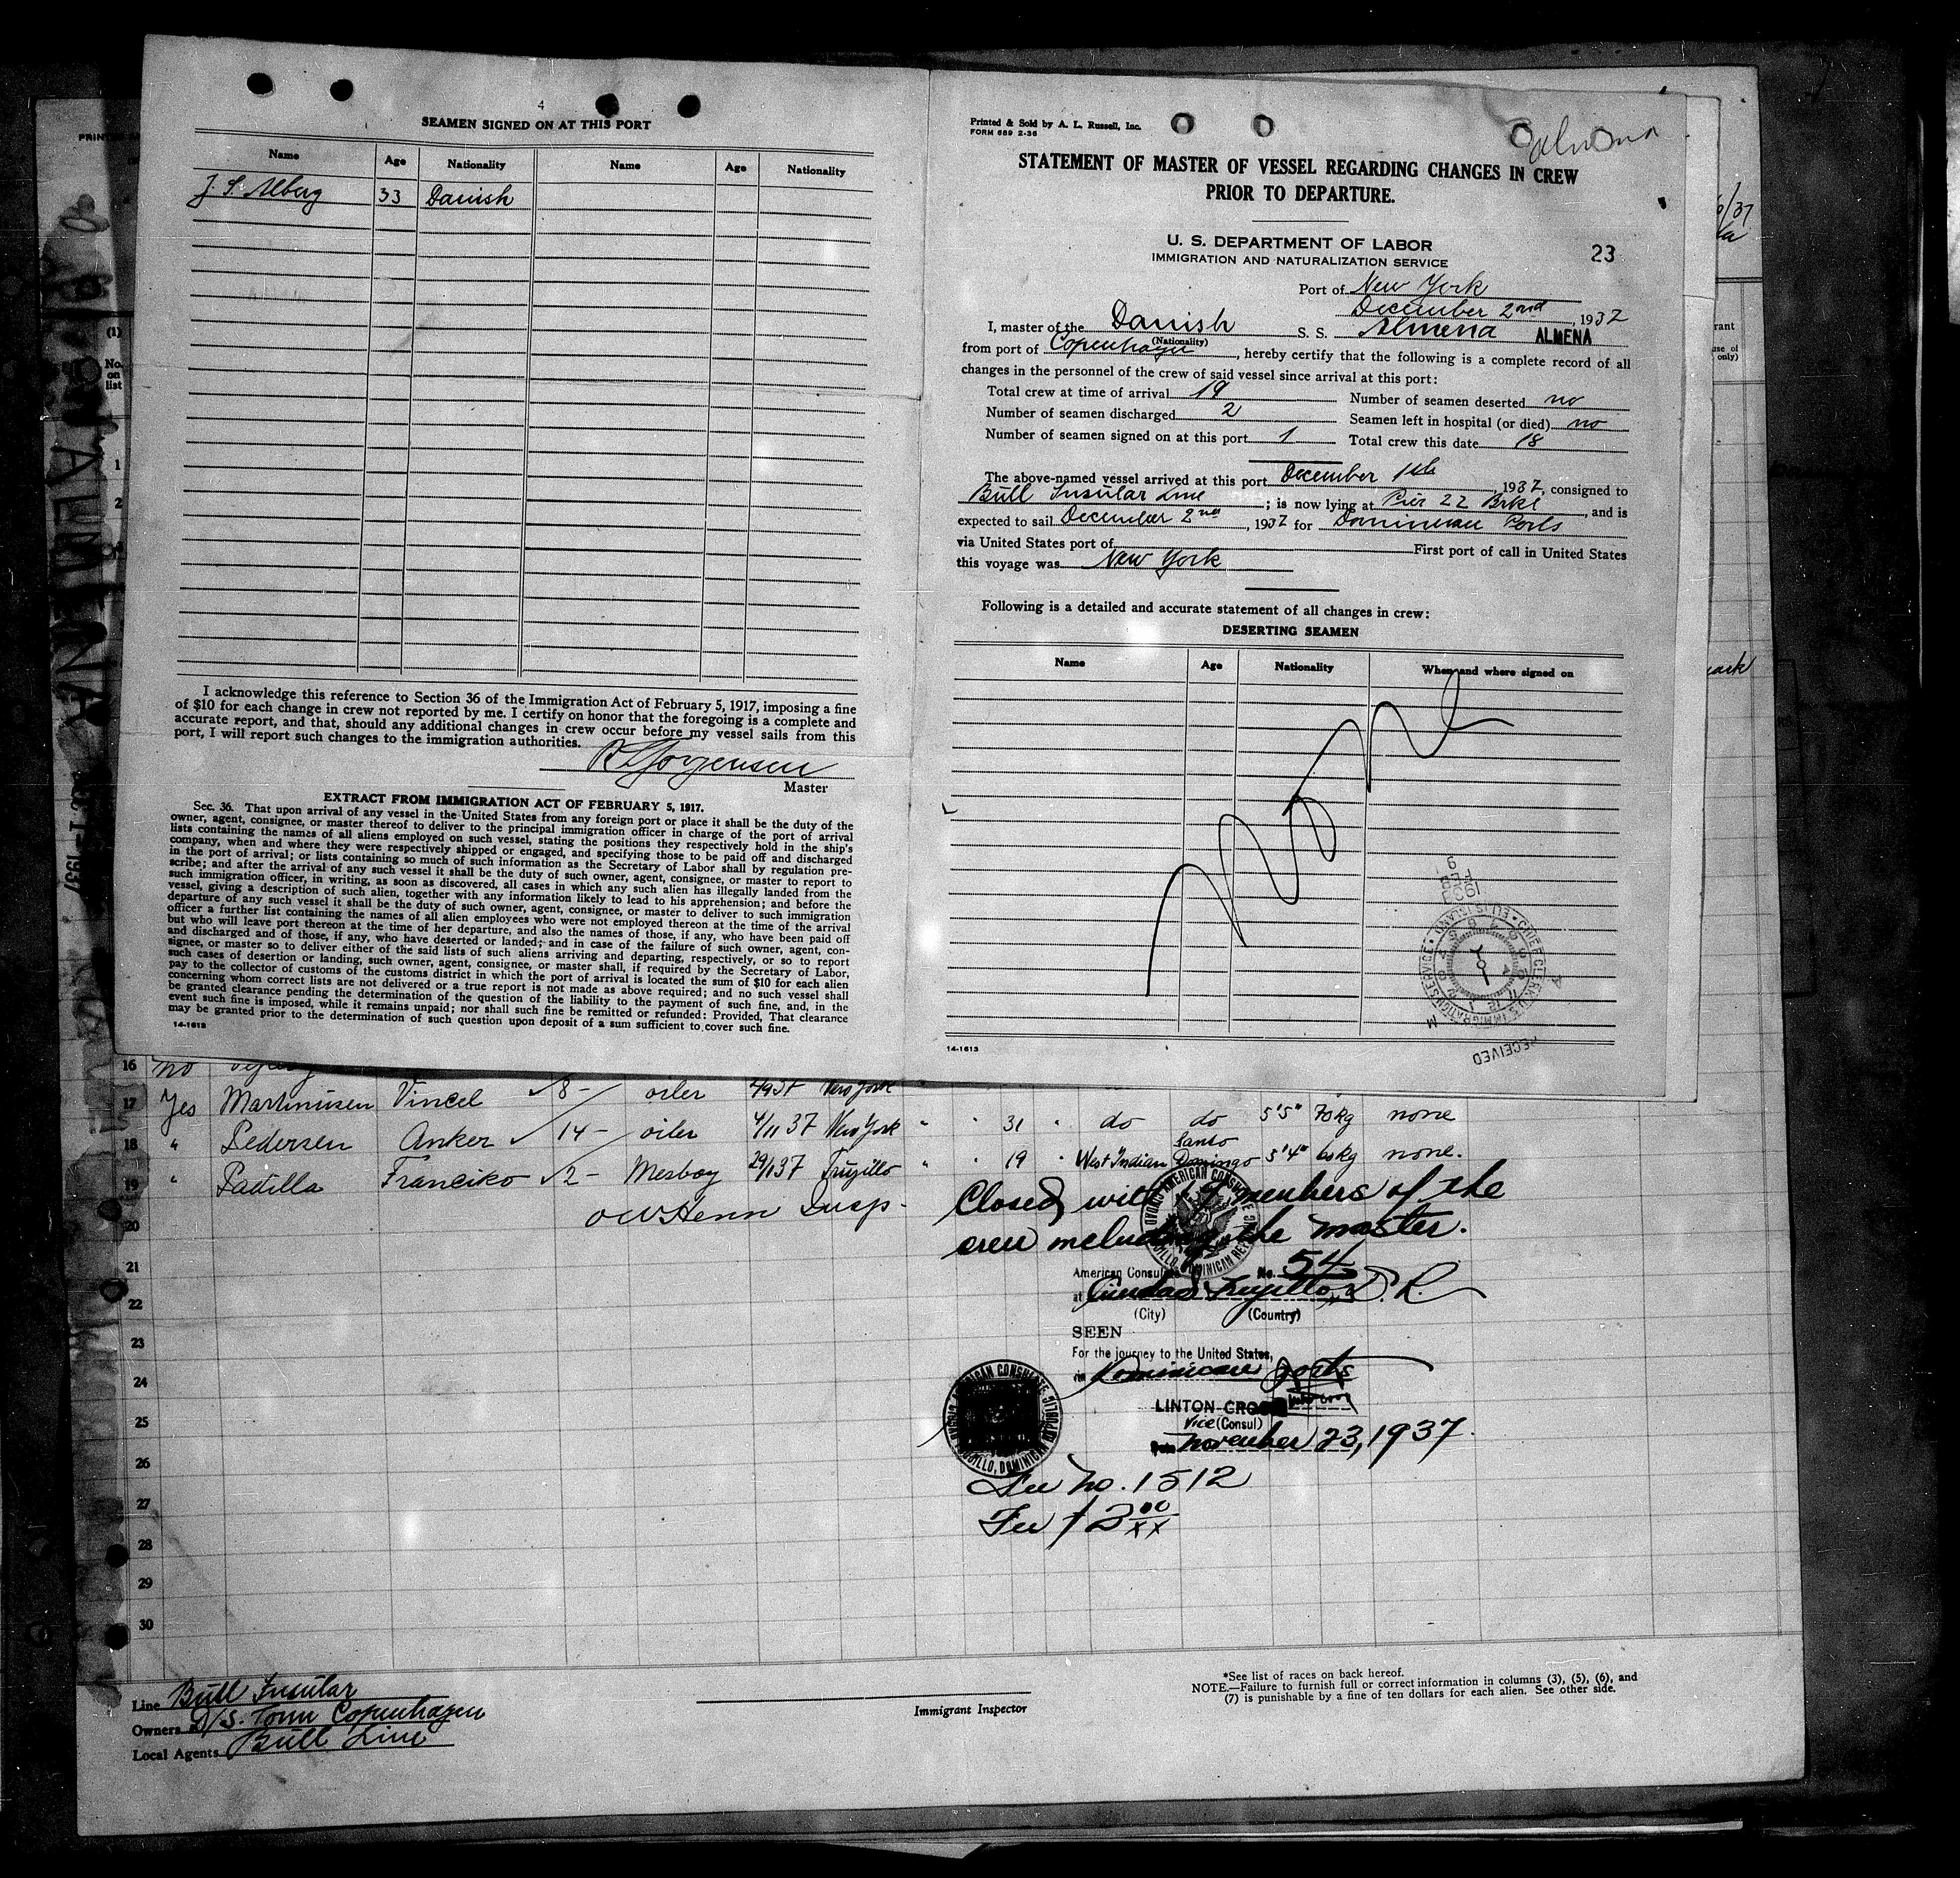 4
SEAMEN SIGNED ON AT THIS PORT
Name Age Nationality Name Age Nationality
J. S. Alberg 33 Danish
I acknowledge this reference to Section 36 of the Immigration Act of February 5, 1917, imposing a fine
of $10 for each change in crew not reported by me. I certify on honor that the foregoing is a complete and
accurate report, and that, should any additional changes in crew occur before my vessel sails from this
port, I will report such changes to the immigration authorities.
Jorgensen
Master
EXTRACT FROM IMMIGRATION ACT OF FEBRUARY 5, 1917.
Sec. 36. That upon arrival of any vessel in the United States from any foreign port or place it shall be the duty of the
owner, agent, consignee, or master thereof to deliver to the principal immigration officer in charge of the port of arrival
lists containing the names of all aliens employed on such vessel, stating the positions they respectively hold in the ship's
company, when and where they were respectively shipped or engaged, and specifying those to be paid off and discharged
in the port of arrival; or lists containing so much of such information as the Secretary of Labor shall by regulation pre-
scribe; and after the arrival of any such vessel it shall be the duty of such owner, agent, consignee, or master to report to
such immigration officer, in writing, as soon as discovered, all cases in which any such alien has illegally landed from the
vessel, giving a description of such alien, together with any information likely to lead to his apprehension; and before the
departure of any such vessel it shall be the duty of such owner, agent, consignee, or master to deliver to such immigration
officer a further list containing the names of all alien employees who were not employed thereon at the time of the arrival
but who will leave port thereon at the time of her departure, and also the names of those, if any, who have been paid off
and discharged and of those, if any, who have deserted or landed; and in case of the failure of such owner, agent, con-
signee, or master so to deliver either of the said lists of such aliens arriving and departing, respectively, or so to report
such cases of desertion or landing, such owner, agent, consignee, or master shall, if required by the Secretary of Labor,
pay to the collector of customs of the customs district in which the port of arrival is located the sum of $10 for each alien
concerning whom correct lists are not delivered or a true report is not made as above required; and no such vessel shall
be granted clearance pending the determination of the question of the liability to the payment of such fine, and, in the
event such fine is imposed, while it remains unpaid; nor shall such fine be remitted or refunded: Provided, That clearance
may be granted prior to the determination of such question upon deposit of a sum sufficient to cover such fine.
14-1613
Printed & Sold by A. L. Russell, Inc.
FORM 689 2-36
STATEMENT OF MASTER OF VESSEL REGARDING CHANGES IN CREW
PRIOR TO DEPARTURE.
U. S. DEPARTMENT OF LABOR
IMMIGRATION AND NATURALIZATION SERVICE
23
Port of New York
December 2nd, 1937
I, master of the Danish S. S. Almena ALMENA
(Nationality)
from port of Copenhagen, hereby certify that the following is a complete record of all
changes in the personnel of the crew of said vessel since arrival at this port:
Total crew at time of arrival 19 Number of seamen deserted no
Number of seamen discharged 2 Seamen left in hospital (or died) no
Number of seamen signed on at this port 1 Total crew this date 18
The above-named vessel arrived at this port December 1th, 1937, consigned to
Bull Insular Line; is now lying at Pier 22 Brkl, and is
expected to sail December 2nd, 1937 for Dominican Ports
via United States port of First port of call in United States
this voyage was New York
Following is a detailed and accurate statement of all changes in crew:
DESERTING SEAMEN
Name Age Nationality When and where signed on
None
RECEIVED
14-1613
ALMENA
1937
(1)
No. on list
1
2
16 no
17 Yes Martinusen Vincel 8- oiler New York
18 " Pedersen Anker 14- oiler 4/11 37 New York " " 31 " do do 5'5" 70kg none
19 " Padilla Franciko 2- Mesboy 29/1 37 Trujillo " " 19 " West Indian Santo Domingo 5'4" 60kg none.
20
21
22
23
24
25
26
27
28
29
30
Closed with 19 members of the
crew including the master.
American Consulate No. 54
at Ciudad Trujillo, D. R.
(City) (Country)
SEEN
For the journey to the United States,
via Dominican ports
LINTON CROOK
Vice (Consul)
Date November 23, 1937.
Fee No. 1512
Fee $2 00/xx
Line Bull Insular
Owners D/S. Torm Copenhagen
Local Agents Bull Line
Immigrant Inspector
*See list of races on back hereof.
NOTE.—Failure to furnish full or correct information in columns (3), (5), (6), and
(7) is punishable by a fine of ten dollars for each alien. See other side.